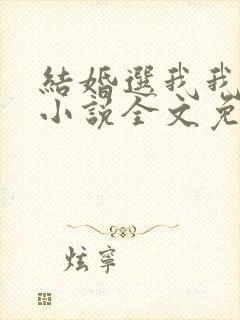 結婚選我我
小說全文免
炫寧